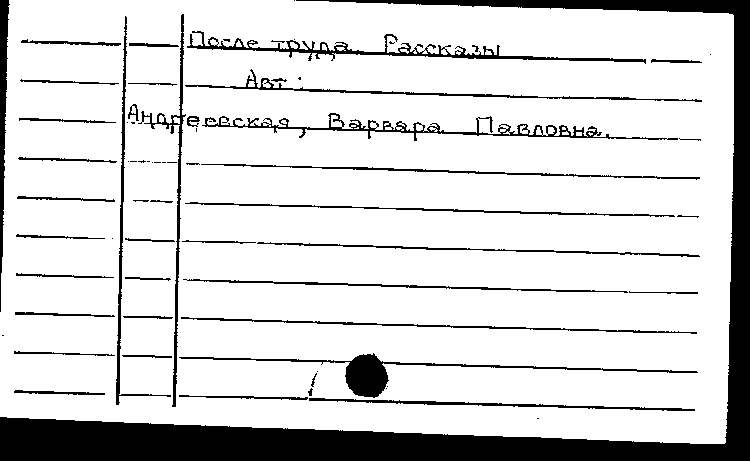 После труда. Рассказы
Авт:
Андреевская, Варвара Павловна.